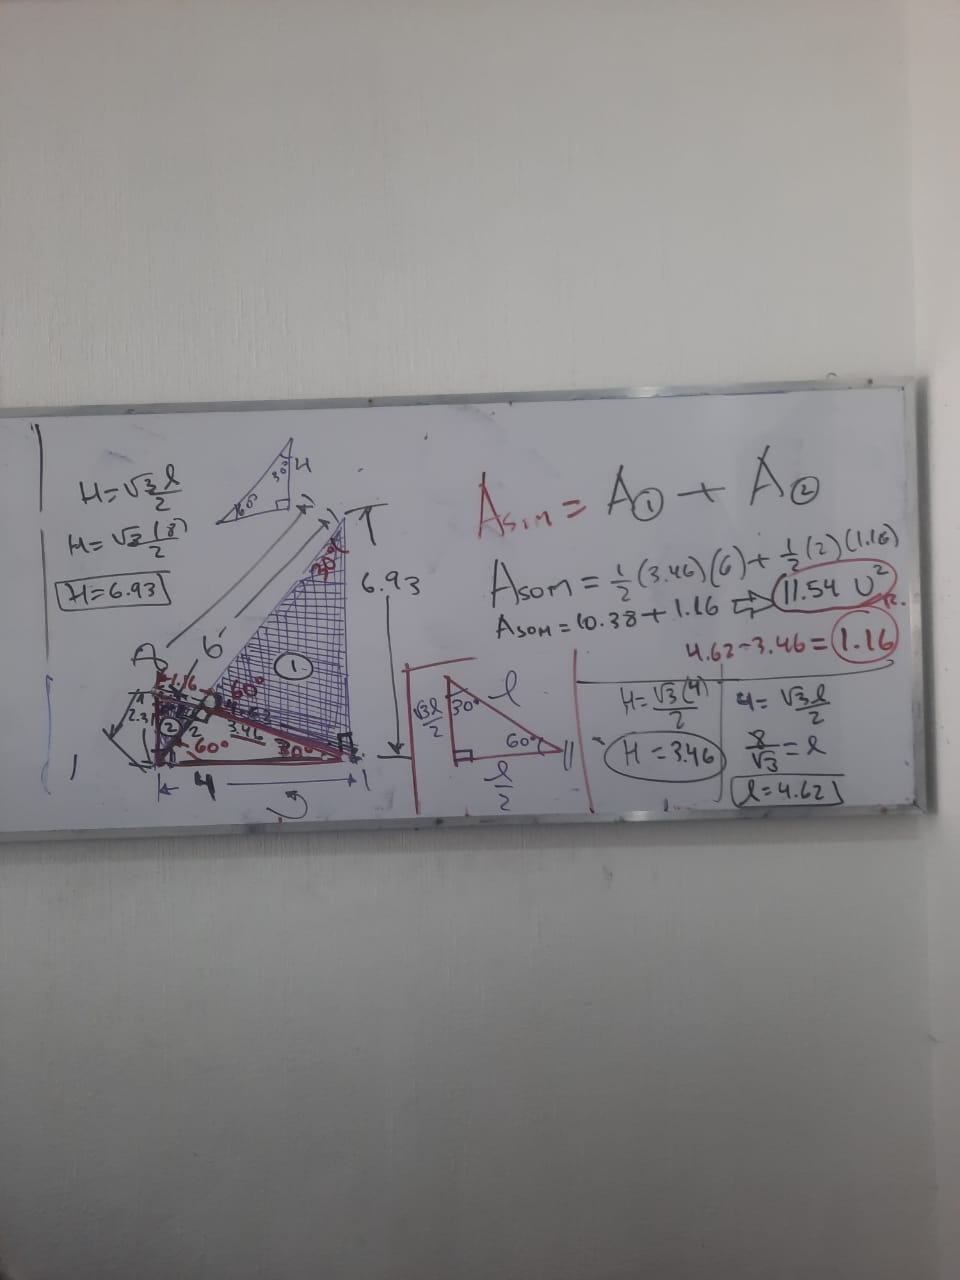 H=√3 l/2
H=√3 (8)/2
H=6.93
30°
H
60°
30°
6.93
8
6
1.16
60°
①
2.31
②
2
4.62
3.46
60°
30°
4
Asom = A① + A②
Asom = 1/2 (3.46)(6) + 1/2 (2)(1.16)
Asom = 10.38 + 1.16 ⇒ 11.54 U² R.
4.62-3.46=1.16
√3l/2
30°
l
60°
l/2
H=√3(4)/2
H=3.46
4=√3l/2
8/√3=l
l=4.62